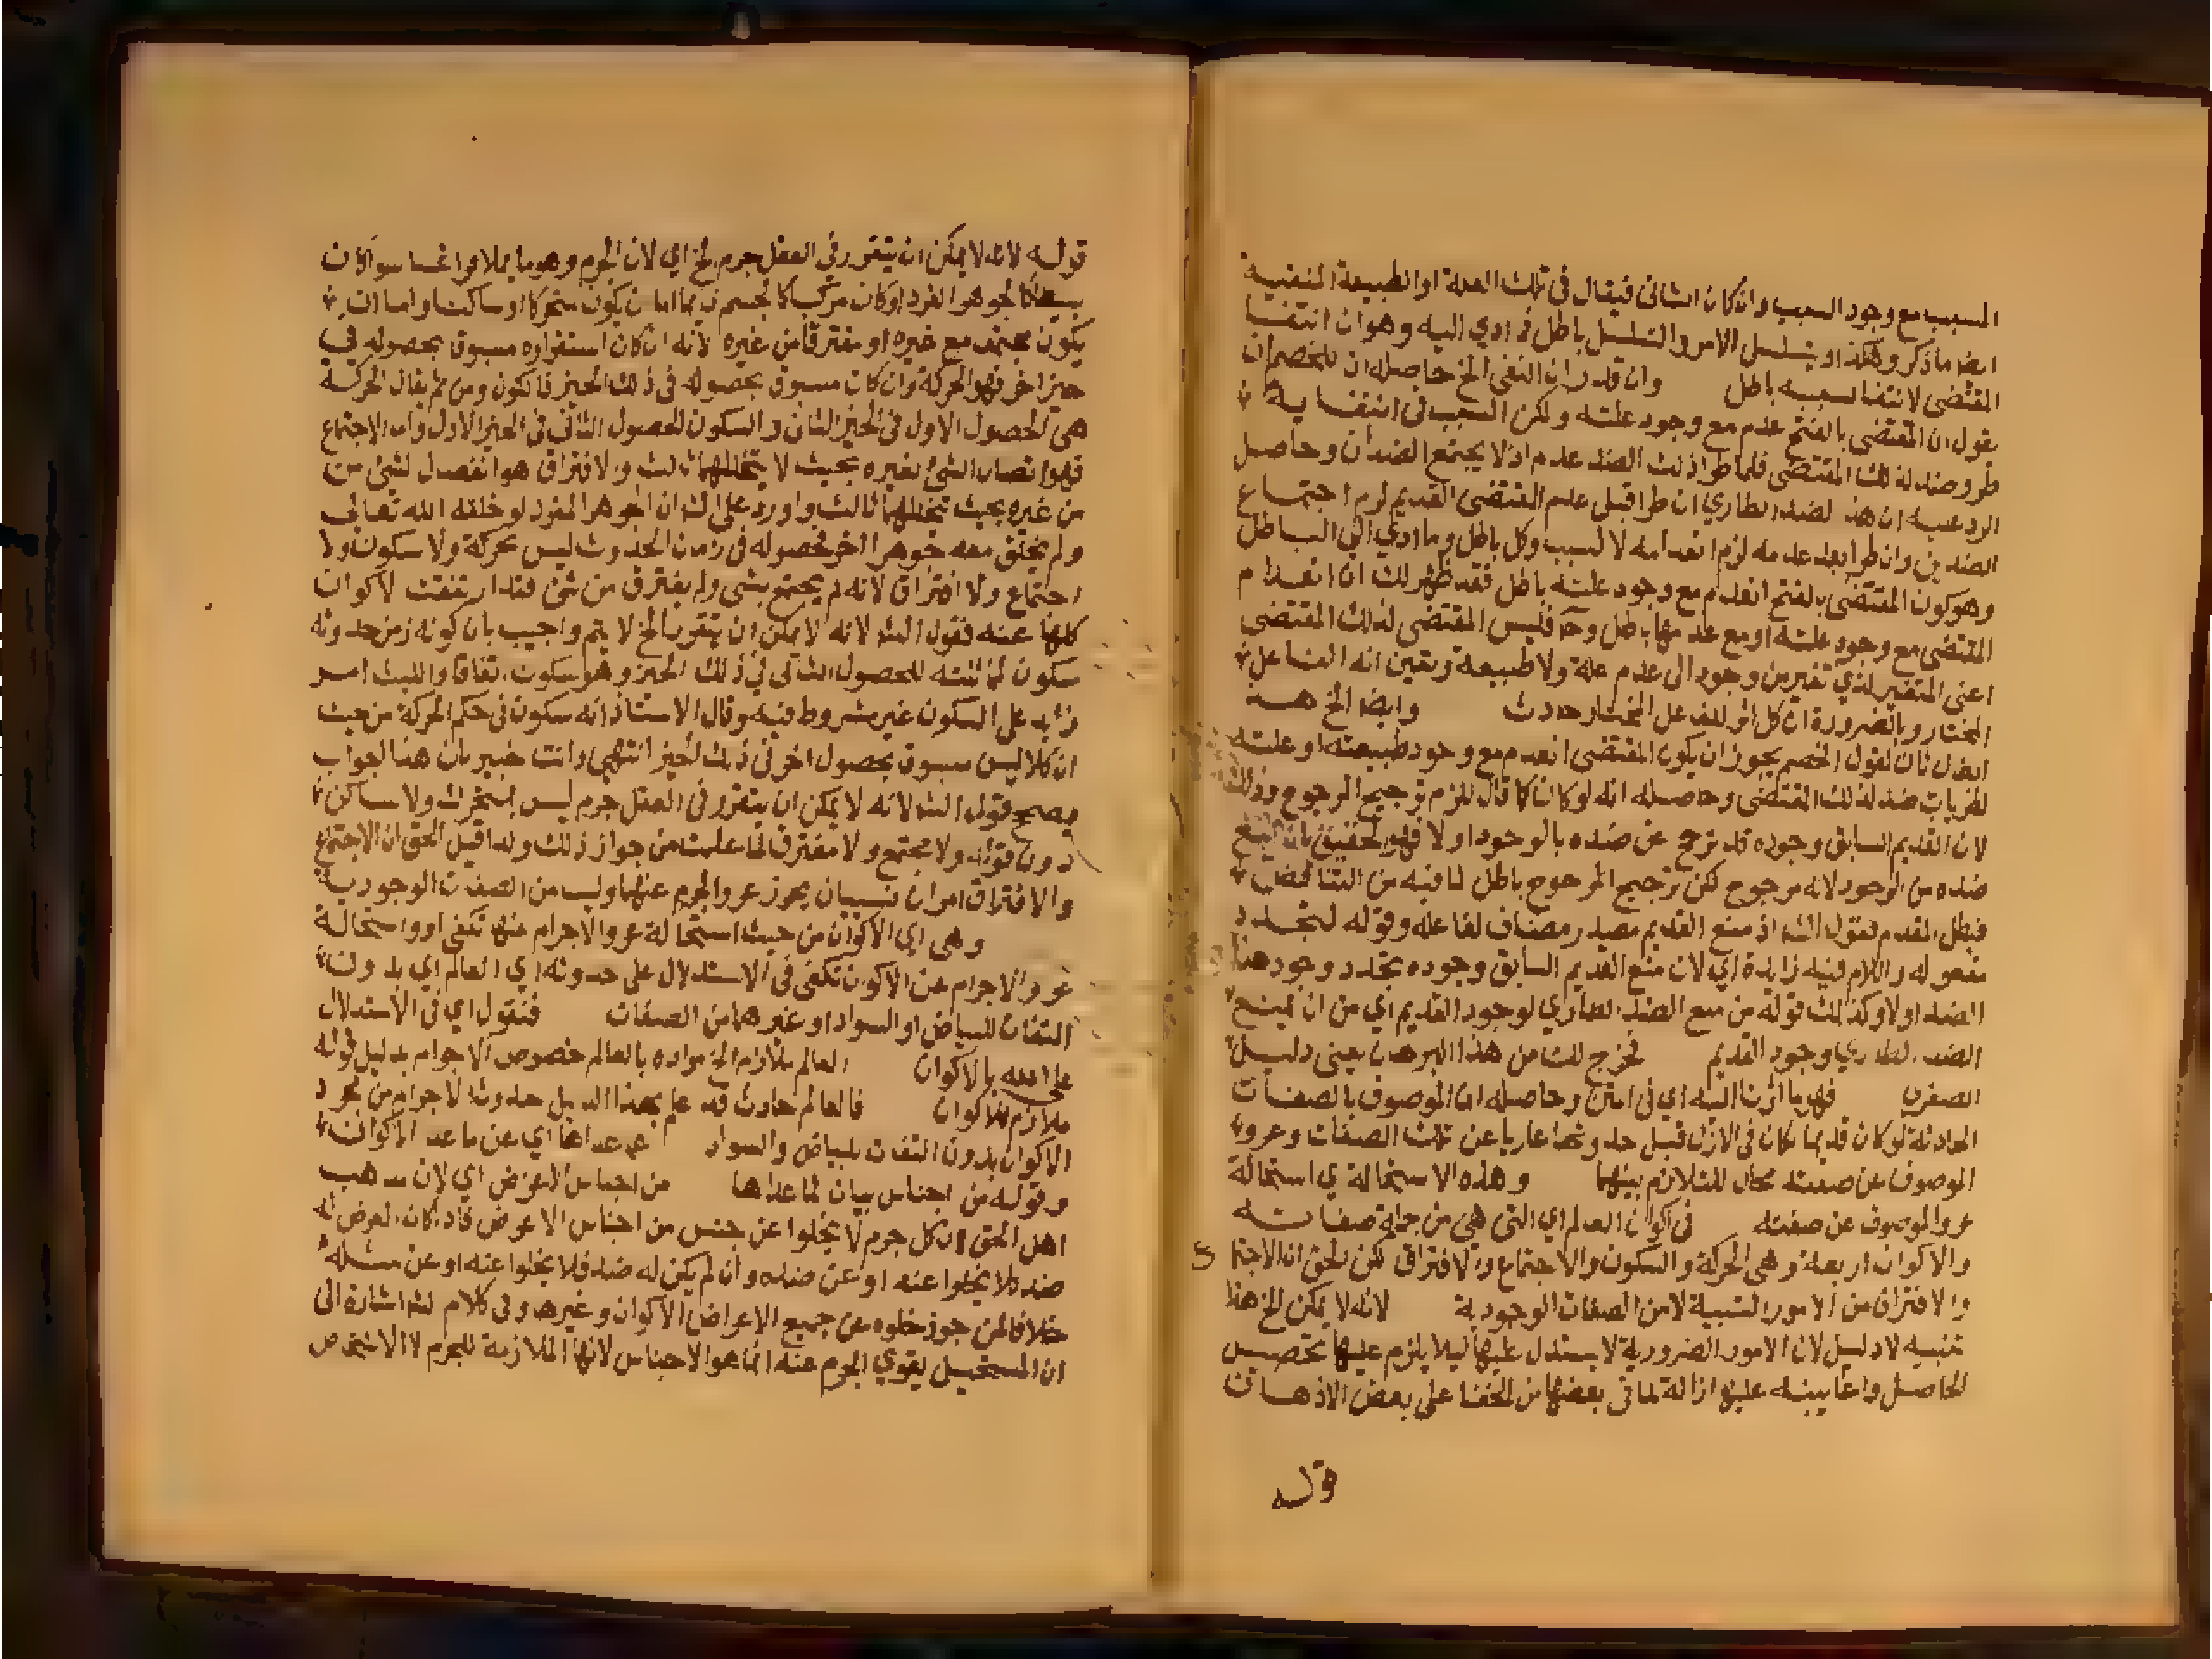 المسبب مع وجود السبب وان كان الثاني فيقال في تلك العلة او الطبيعة المنفية
ايضا ما ذكر وهكذا او يتسلسل الامر والتسلسل باطل فما ادي اليه وهو ان انتفا
المقتضى لانتفا سببه باطل وان قدر ان النفى الخ حاصله ان للخصم ان
يقول ان المقتضى بالفتح عدم مع وجود علته ولكن السبب في انتفايه
طرو ضد لذلك المقتضى فلما طرا ذلك الضد عدم اذ لا يجتمع الضدان وحاصل
الرد عليه ان هذا الضد الطاري ان طرا قبل عدم المقتضى القديم لزم اجتماع
الضدين وان طرا بعد عدمه لزم انعدامه لا لسبب وكل باطل وما ادي الى الباطل
وهو كون المقتضى بالفتح انعدم مع وجود علته باطل فقد ظهر لك ان انعدام
المقتضى مع وجود علته او مع عدمها باطل وح فليس المقتضى لذلك المقتضى
اعنى المتغير الذي تغير من وجود الى عدم علة ولا طبيعة وتعين انه الفاعل
المختار وبالضرورة ان كل اثر للفاعل المختار حادث وايضا الخ هذا
ابطال ثان لقول الخصم يجوز ان يكون المقتضى انعدم مع وجود طبيعته او علته
لطريان ضد لذلك المقتضى وحاصله انه لو كان كما قال للزم ترجيح المرجوح وذلك
لان القديم السابق وجوده قد ترجح عن ضده بالوجود اولا فهو الحقيق بان يمنع
ضده من الوجود لانه مرجوح لكن ترجيح المرجوح باطل لما فيه من التناقض
فبطل المقدم فقول الشه اذ منع القديم مصدر مضاف لفاعله وقوله لتجدد
مفعوله واللام فيه زايدة اي لان منع القديم السابق وجوده تجدد وجود هذا
الضد اولا وكذلك قوله من منع الضد الطاري لوجود القديم اي من ان يمنع
الضد الطاري وجود القديم فخرج لك من هذا البرهان يعنى دليل
الصغرى فهو ما اشرنا اليه اي في المتن وحاصله ان الموصوف بالصفات
الحادثة لو كان قديما لكان في الازل قبل حدوثها عاريا عن تلك الصفات وعرو
الموصوف عن صفته محال للتلازم بينهما وهذه الاستحالة اي استحالة
عرو الموصوف عن صفته في اكوان العالم اي التى هي من جملة صفاته
والاكوان اربعة وهى الحركة والسكون والاجتماع والافتراق لكن الحق ان الاجتما
والافتراق من الامور النسبية لا من الصفات الوجودية لانه لا يمكن الخ هذا
تنبيه لا دليل لان الامور الضرورية لا يستدل عليها ليلا يلزم عليها تحصيل
الحاصل وانما ينبه عليها ازالة لما في بعضها من الخفا على بعض الاذهان
قوله
قوله لانه لا يمكن ان يتقرر في العقل جرم الخ اي لان الجرم وهو ما يملا فراغا سوا كان
بسيطا كالجوهر الفرد او كان مركبا كالجسم فيها اما ان يكون متحركا او ساكنا واما ان
يكون مجتمعا مع غيره او مفترقا من غيره لانه ان كان استقراره مسبوقا بحصوله في
حيز اخر فهو الحركة وان كان مسبوقا بحصوله في ذلك الحيز فالكون ومن ثم يقال الحركة
هي الحصول الاول في الحيز الثاني والسكون الحصول الثاني في الحيز الاول واما الاجتماع
فهو اتصال الشئ بغيره بحيث لا يتخللهما ثالث والافتراق هو انفصال لشئ من
من غيره بحيث يتخللهما ثالث واورد على الشه ان الجوهر المفرد لو خلقه الله تعالى
ولم يخلق معه جوهرا اخر فحصوله في زمان الحدوث ليس بحركة ولا سكون ولا
اجتماع ولا افتراق لانه لم يجتمع بشى ولم يفترق من شئ فقد ارتفعت الاكوان
كلها عنه فقول الشه لانه لا يمكن ان يتقرر الخ لا يتم واجيب بان كونه زمن حدوثه
سكون لمماثلته للحصول الثاني في ذلك الحيز وهو سكون اتفاقا واللبث امر
زايد على السكون غير مشروط فيه وقال الاستاذ انه سكون في حكم الحركة من حيث
ان كلا ليس مسبوق بحصول اخر في ذلك الحيز انتهى وانت خبير بان هذا الجواب
يصحح قول الشه لانه لا يمكن ان يتقرر في العقل جرم ليس بمتحرك ولا ساكن
دون قوله ولا مجتمع ولا مفترق لما علمت من جواز ذلك ولذا قيل الحق ان الاجتماع
والافتراق امران نسبيان يجوز عرو الجرم عنهما وليسا من الصفات الوجودية
وهى اي الاكوان من حيث استحالة عرو الاجرام عنها تكفى او واستحالة
عرو الاجرام عن الاكوان تكفى في الاستدلال على حدوثه اي العالم اي بدون
التفات للبياض او السواد او غيرهما من الصفات فنقول اي في الاستدلال
على الله بالاكوان العالم ملازم الخ مراده بالعالم خصوص الاجرام بدليل قوله
ملازم للاكوان فالعالم حادث قد علم بهذا الدليل حدوث الاجرام من
الاكوان بدون التفات للبياض والسواد عداها اي عن ما عدا الاكوان
وقوله من اجناس بيان لما عداها من اجناس الاعراض اي لان مذهب
اهل الحق ان كل جرم لا يخلوا عن جنس من اجناس الاعراض فاذا كان العرض له
ضد فلا يخلوا عنه او عن ضده وان لم يكن له ضد فلا يخلوا عنه او عن مثله
خلافا لمن جوز خلوه عن جميع الاعراض الاكوان وغيرها وفي كلام الشه اشارة الى
ان المستحيل لعرو الجرم عنه انما هو الاجناس لانها الملازمة للجرم لا الاشخاص